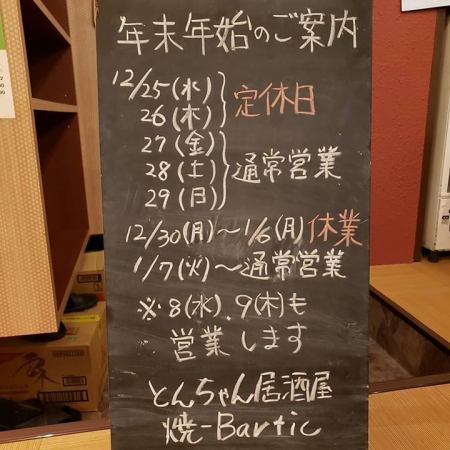 年末年始のご案内
12/25(水)
26(木)
定休日
27(金)
28(土)
29(日)
通常営業
12/30(月)～1/6(月)休業
1/7(火)～通常営業
※8(水).9(木)も
営業します
とんちゃん居酒屋
焼-Bartic